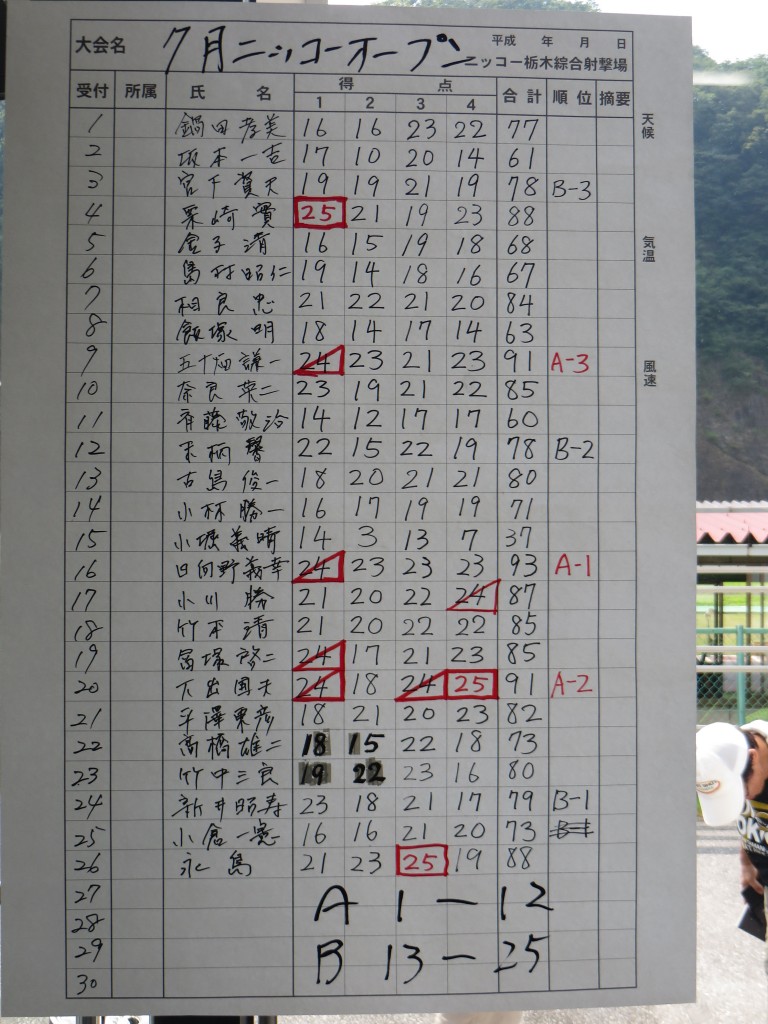 大会名 7月ニッコーオープン 平成 年 月 日
ニッコー栃木綜合射撃場
受付 所属 氏 名 得 点 合計 順位 摘要
1 2 3 4
1 鍋田孝美 16 16 23 22 77
2 坂本一吉 17 10 20 14 61
3 宮下賛夫 19 19 21 19 78 B-3
4 栗崎實 25 21 19 23 88
5 金子清 16 15 19 18 68
6 島村昭仁 19 14 18 16 67
7 相良忠 21 22 21 20 84
8 飯塚明 18 14 17 14 63
9 五十畑謙一 24 23 21 23 91 A-3
10 奈良栄二 23 19 21 22 85
11 斉藤敬治 14 12 17 17 60
12 末柄馨 22 15 22 19 78 B-2
13 古島俊一 18 20 21 21 80
14 小林勝一 16 17 19 19 71
15 小堀義晴 14 3 13 7 37
16 日向野義幸 24 23 23 23 93 A-1
17 小川勝 21 20 22 24 87
18 竹本清 21 20 22 22 85
19 冨塚啓二 24 17 21 23 85
20 大出国夫 24 18 24 25 91 A-2
21 平澤東彦 18 21 20 23 82
22 高橋雄二 18 15 22 18 73
23 竹中三良 19 22 23 16 80
24 新井昭寿 23 18 21 17 79 B-1
25 小倉一憲 16 16 21 20 73 B-1
26 永島 21 23 25 19 88
27
28 A 1-12
29
30 B 13-25
天候
気温
風速